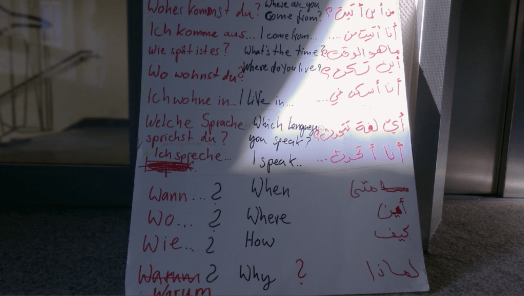 Woher kommst du? Where are you come from? من أين أتيت؟
Ich komme aus... I come from... أنا أتيت من...
Wie spät ist es? What's the time? ما هو الوقت؟
Wo wohnst du? Where do you live? أين تسكن؟
Ich wohne in... I life in... أنا أسكن في...
Welche Sprache Which language أي لغة تتحدث؟
sprichst du? you speak?
Ich spreche... I speak... أنا أتحدث...
Wann...? When متى
Wo...? Where أين
Wie...? How كيف
Warum? Why? لماذا
Warum